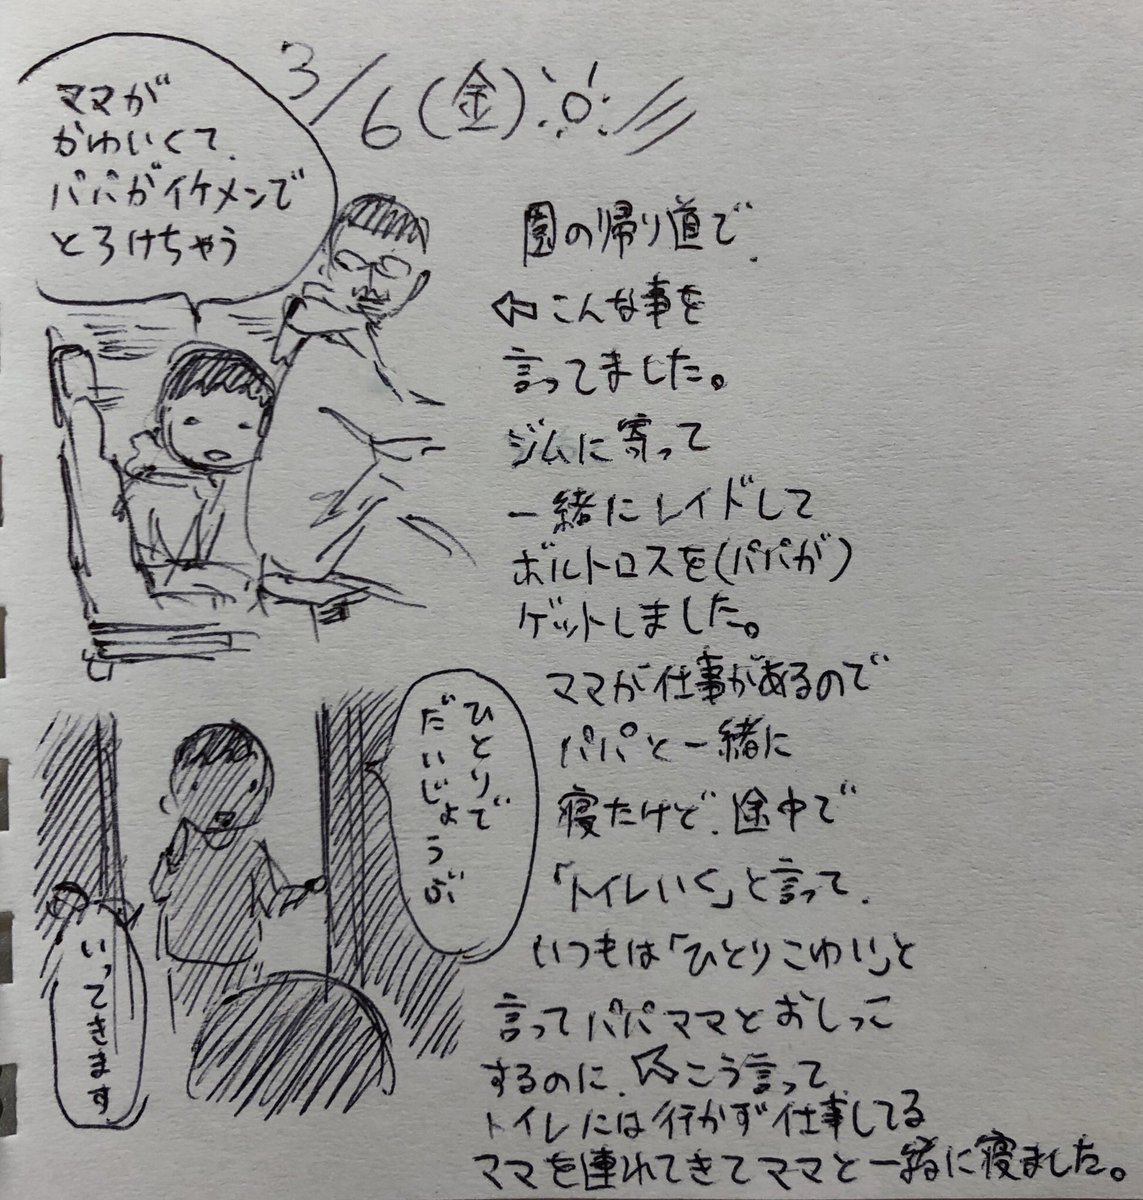 3/6(金)
ママが
かわいくて、
パパがイケメンで
とろけちゃう
園の帰り道で、
⇦こんな事を
言ってました。
ジムに寄って
一緒にレイドして
ボルトロスを(パパが)
ゲットしました。
ママが仕事があるので
パパと一緒に
寝たけど、途中で
「トイレいく」と言って、
いつもは「ひとりこわい」と
言ってパパママとおしっこ
するのに、⇦こう言って
トイレには行かず仕事してる
ママを連れてきてママと一緒に寝ました。
ひとりで
だいじょうぶ
いってきます